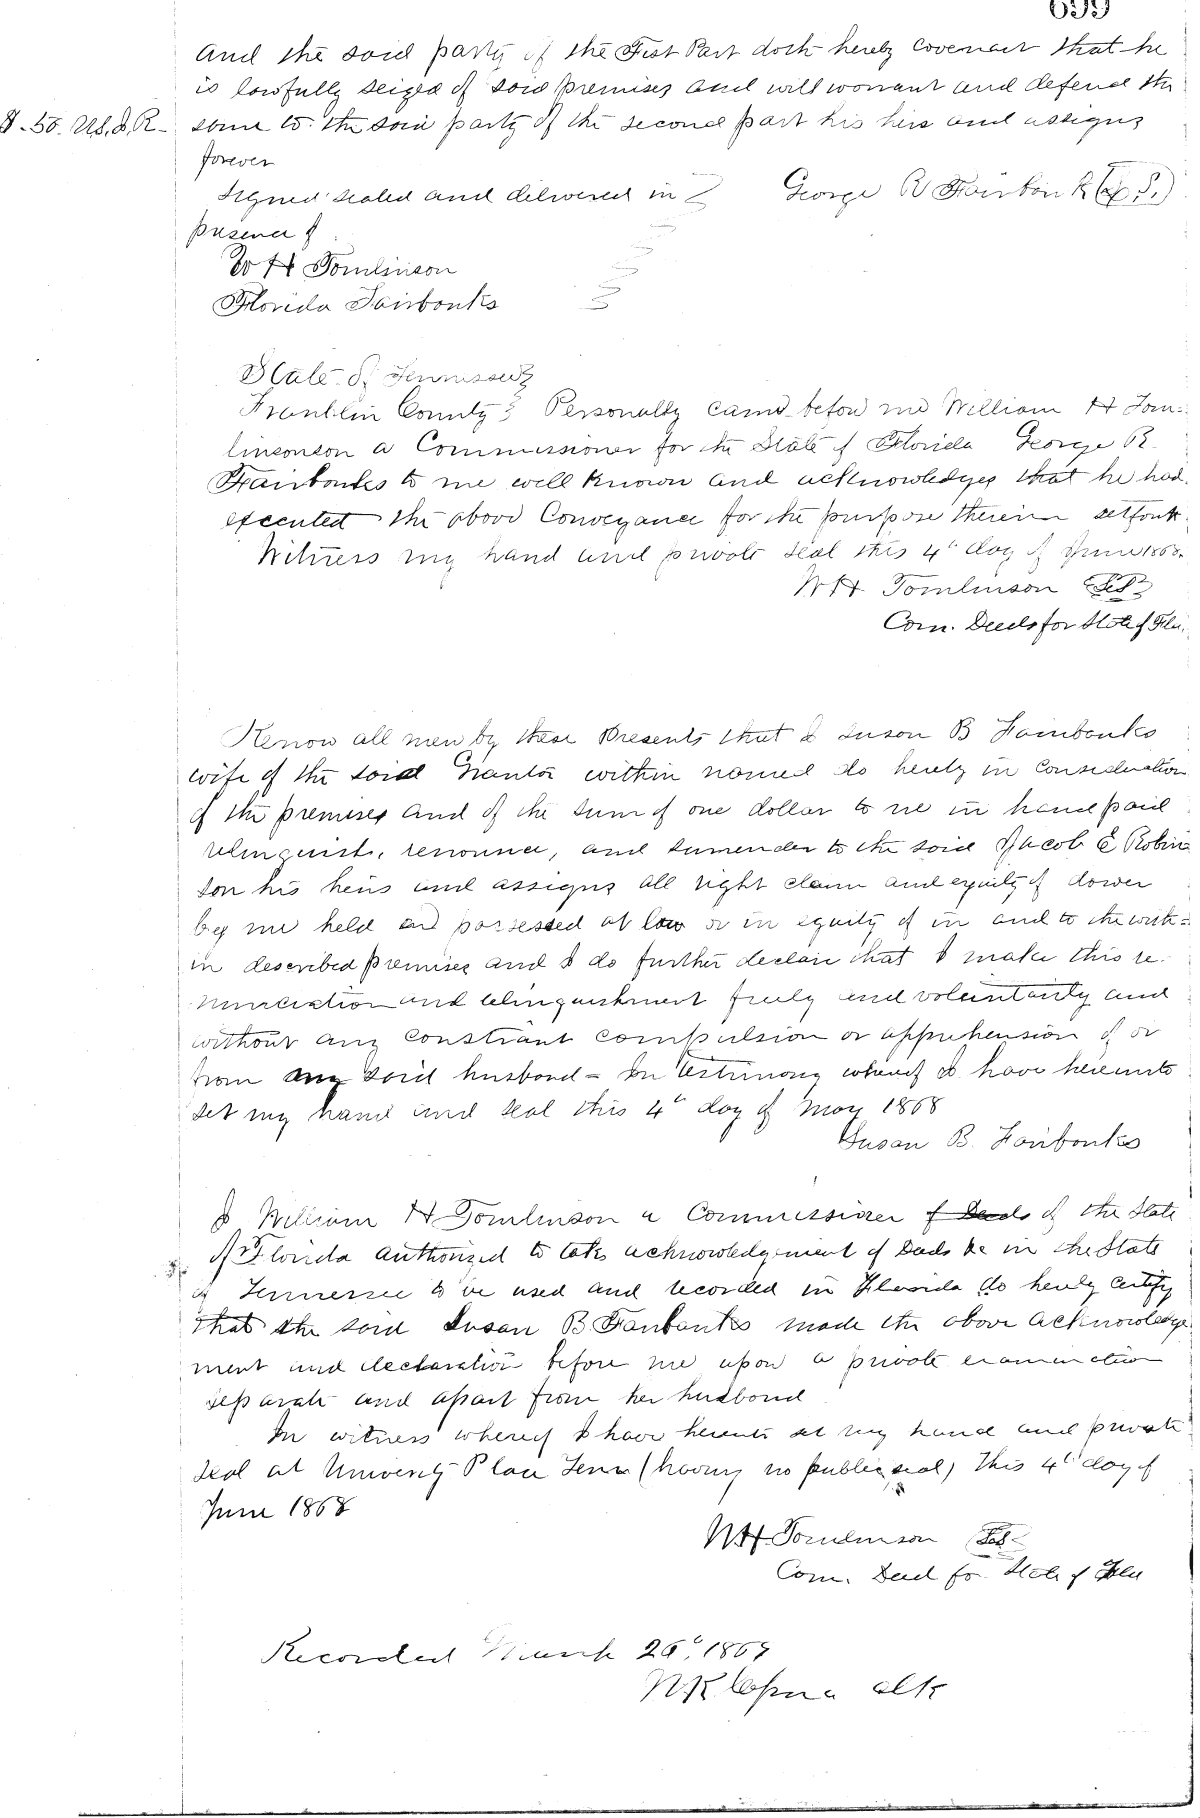 699
and the said party of the First Part doth hereby covenant that he
is lawfully seized of said premises and will warrant and defend the
$.50. U.S.I.R. same to the said party of the second part his heirs and assigns
forever
Signed sealed and delivered in George R Fairbanks (L.S.)
presence of
W H Tomlinson
Florida Fairbanks
State of Tennessee
Franklin County Personally came before me William H Tom=
linsonson a Commissioner for the State of Florida George R.
Fairbanks to me well known and acknowledges that he had
executed the above Conveyance for the purpose therein setforth
Witness my hand and private seal this 4th day of June 1868.
W H Tomlinson
Com. Deeds for State of Fla.
Know all men by these Presents that I Susan B Fairbanks
wife of the said Grantor within named do hereby in consideration
of the premises and of the sum of one dollar to me in hand paid
relinquish, renounce, and surrender to the said Jacob E Robin
son his heirs and assigns all right claim and equity of dower
by me held and possessed at law or in equity of in and to the with=
in described premises and I do further declare that I make this re-
nunciation and relinquishment freely and voluntarily and
without any constraint compulsion or apprehension of or
from my said husband - In testimony whereof I have hereunto
set my hand and seal this 4th day of May 1868
Susan B. Fairbanks
I William H Tomlinson a Commissioner of Deeds of the State
of Florida authorized to take acknowledgement of Deeds &c in the State
of Tennessee to be used and recorded in Florida do hereby certify
that the said Susan B. Fairbanks made the above acknowledge
ment and declaration before me upon a private examination
separate and apart from her husband
In witness whereof I have hereunto set my hand and private
seal at University Place Tenn (having no public seal) this 4th day of
June 1868
W H Tomlinson
Com. Deed for State of Fla
Recorded March 26th, 1869
clk